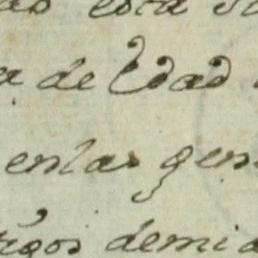 esta
a de Edad
enlas gen
rigos demi